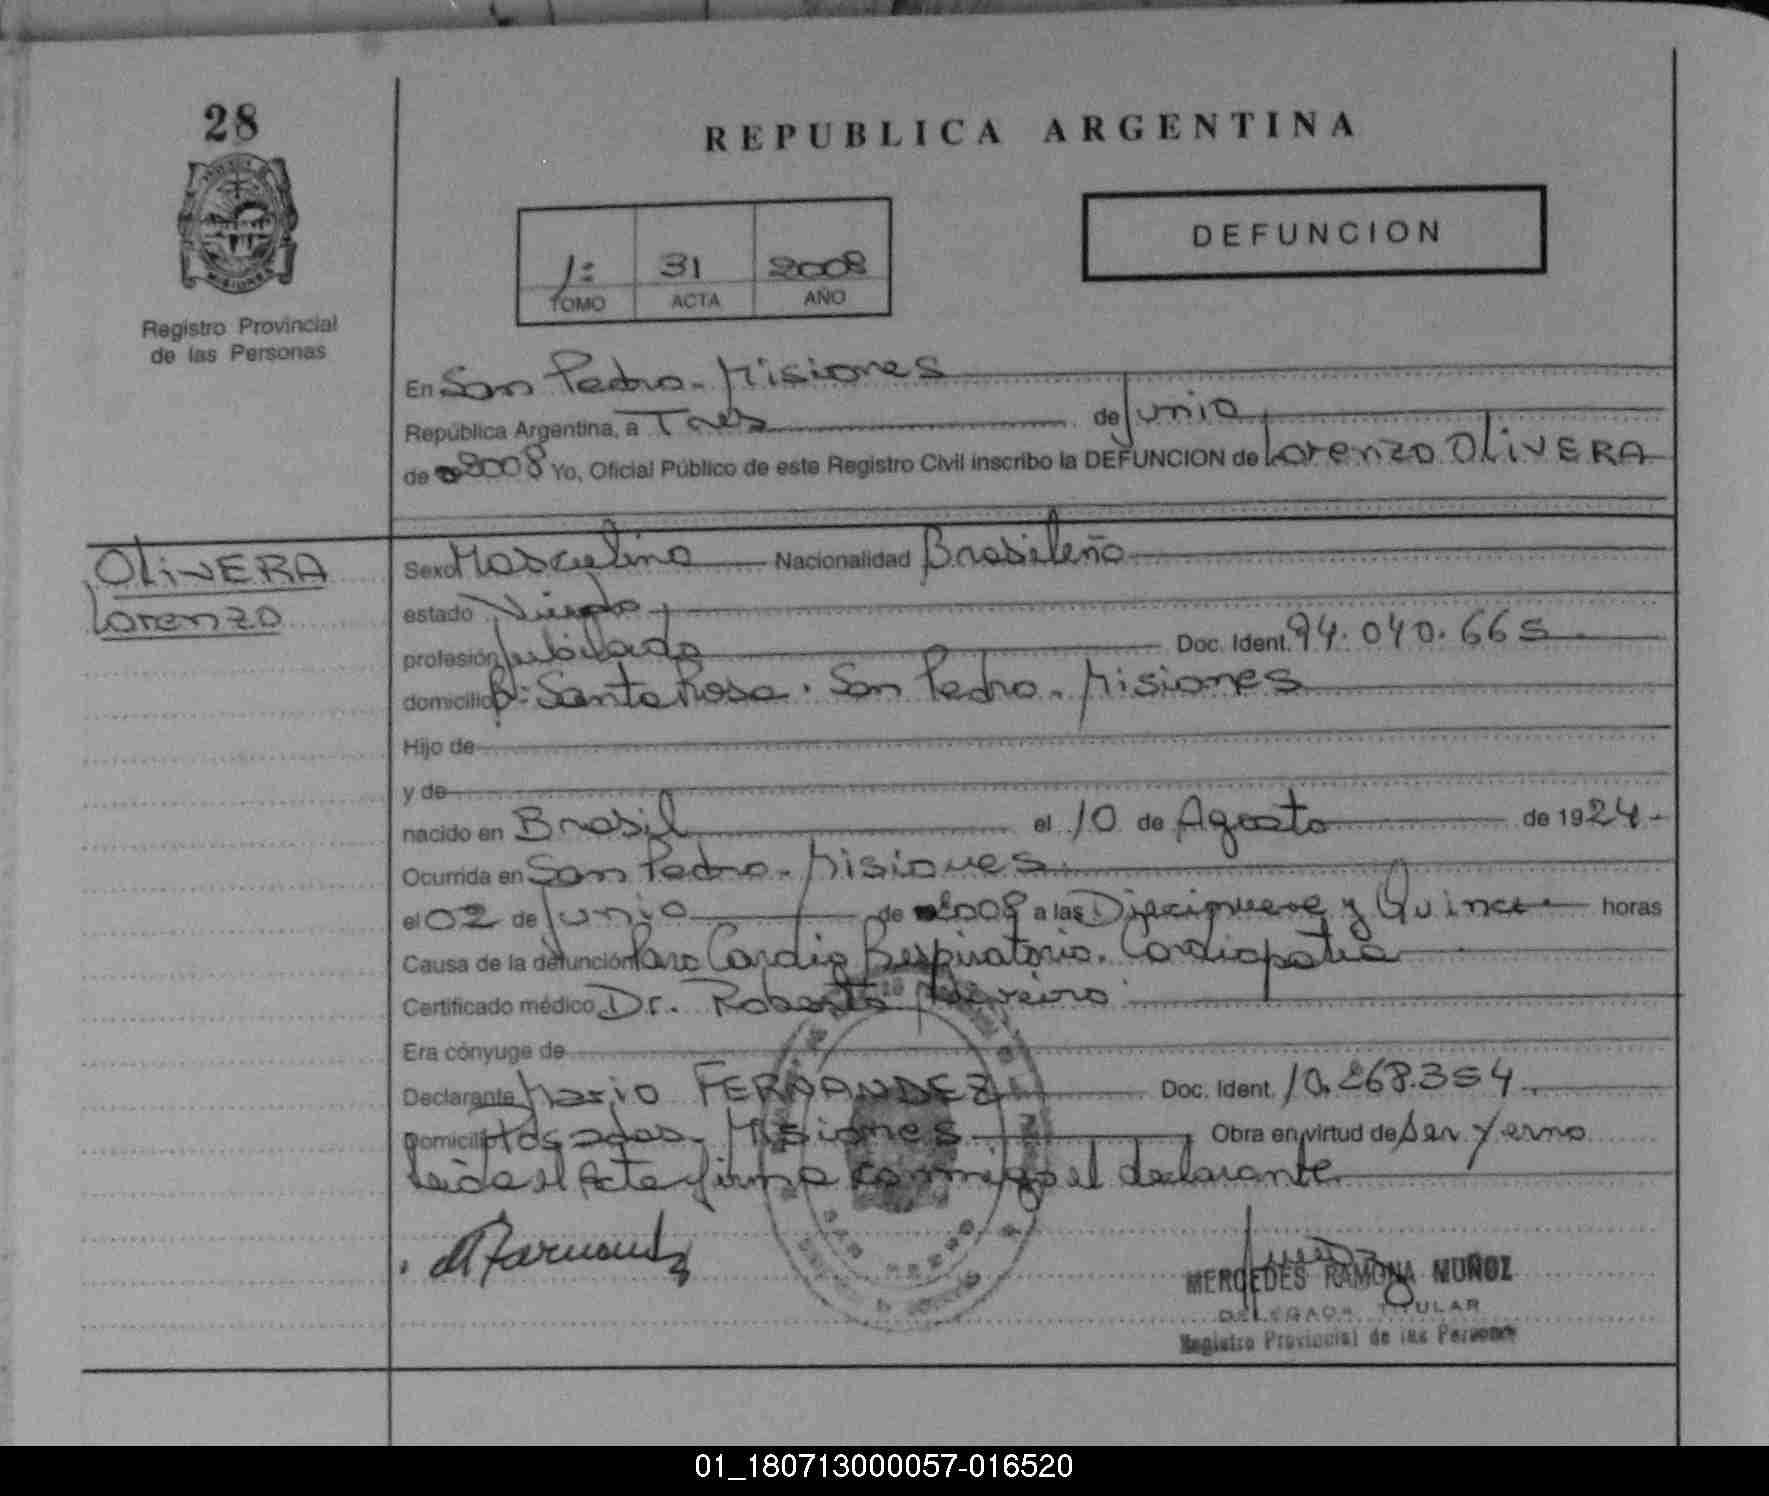 28
REPUBLICA ARGENTINA
DEFUNCION
1= 31 2008
TOMO ACTA AÑO
MISIONES
Registro Provincial
de las Personas
En San Pedro - Misiones
República Argentina, a Tres de Junio
de 2008 Yo, Oficial Público de este Registro Civil inscribo la DEFUNCION de Lorenzo OLIVERA
OLIVERA
Lorenzo
Sexo Masculino Nacionalidad Brasileño
estado Viudo
profesión Jubilado Doc. Ident. 94.040.665
domicilio B= Santa Rosa. San Pedro - Misiones
Hijo de
y de
nacido en Brasil el 10 de Agosto de 1924
Ocurrida en San Pedro - Misiones
el 02 de Junio de 2008 a las Diecinueve y Quince horas
Causa de la defunción Paro Cardio Respiratorio. Cardiopatia
Certificado médico Dr. Roberto
Era cónyuge de
Declarante Mario FERNANDEZ Doc. Ident. 10.268.354
Domicilio Posadas - Misiones Obra en virtud de ser Yerno
Leida el Acta firma conmigo el declarante
MERCEDES RAMONA MUÑOZ
DELEGADA TITULAR
Registro Provincial de las Personas
01_180713000057-016520